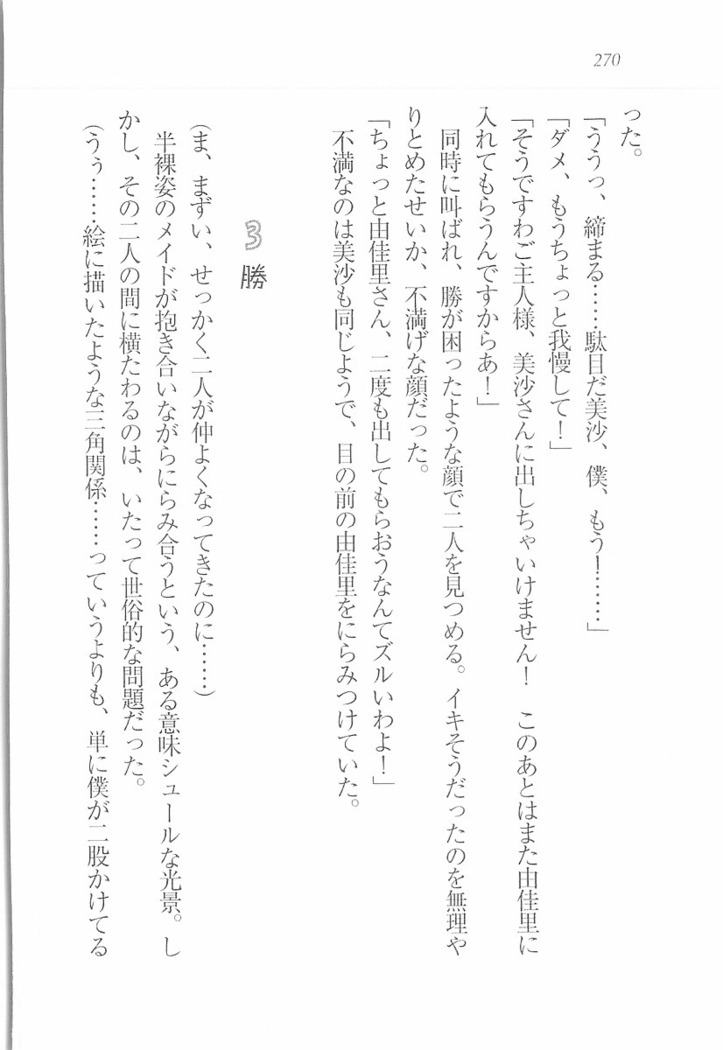 270
った。
「ううっ、締まる……駄目だ美沙、僕、もう！……」
「ダメ、もうちょっと我慢して！」
「そうですわご主人様、美沙さんに出しちゃいけません！　このあとはまた由佳里に
入れてもらうんですからあ！」
　同時に叫ばれ、勝が困ったような顔で二人を見つめる。イキそうだったのを無理や
りとめたせいか、不満げな顔だった。
「ちょっと由佳里さん、二度も出してもらおうなんてズルいわよ！」
　不満なのは美沙も同じようで、目の前の由佳里をにらみつけていた。
3 勝
（ま、まずい、せっかく二人が仲よくなってきたのに……）
　半裸姿のメイドが抱き合いながらにらみ合うという、ある意味シュールな光景。し
かし、その二人の間に横たわるのは、いたって世俗的な問題だった。
（うぅ……絵に描いたような三角関係……っていうよりも、単に僕が二股かけてる